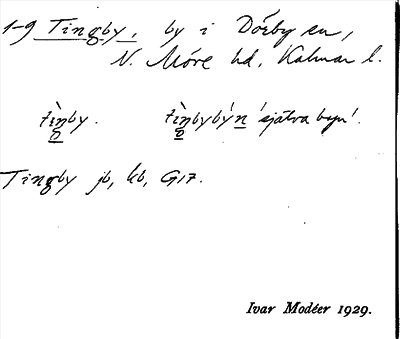 1-9 Tingby, by i Dörby sn,
N. Möre hd, Kalmar l.
tìnby. tìnbybýn 'själva byn'.
Tingby jb, kb, G17.
Ivar Modéer 1929.